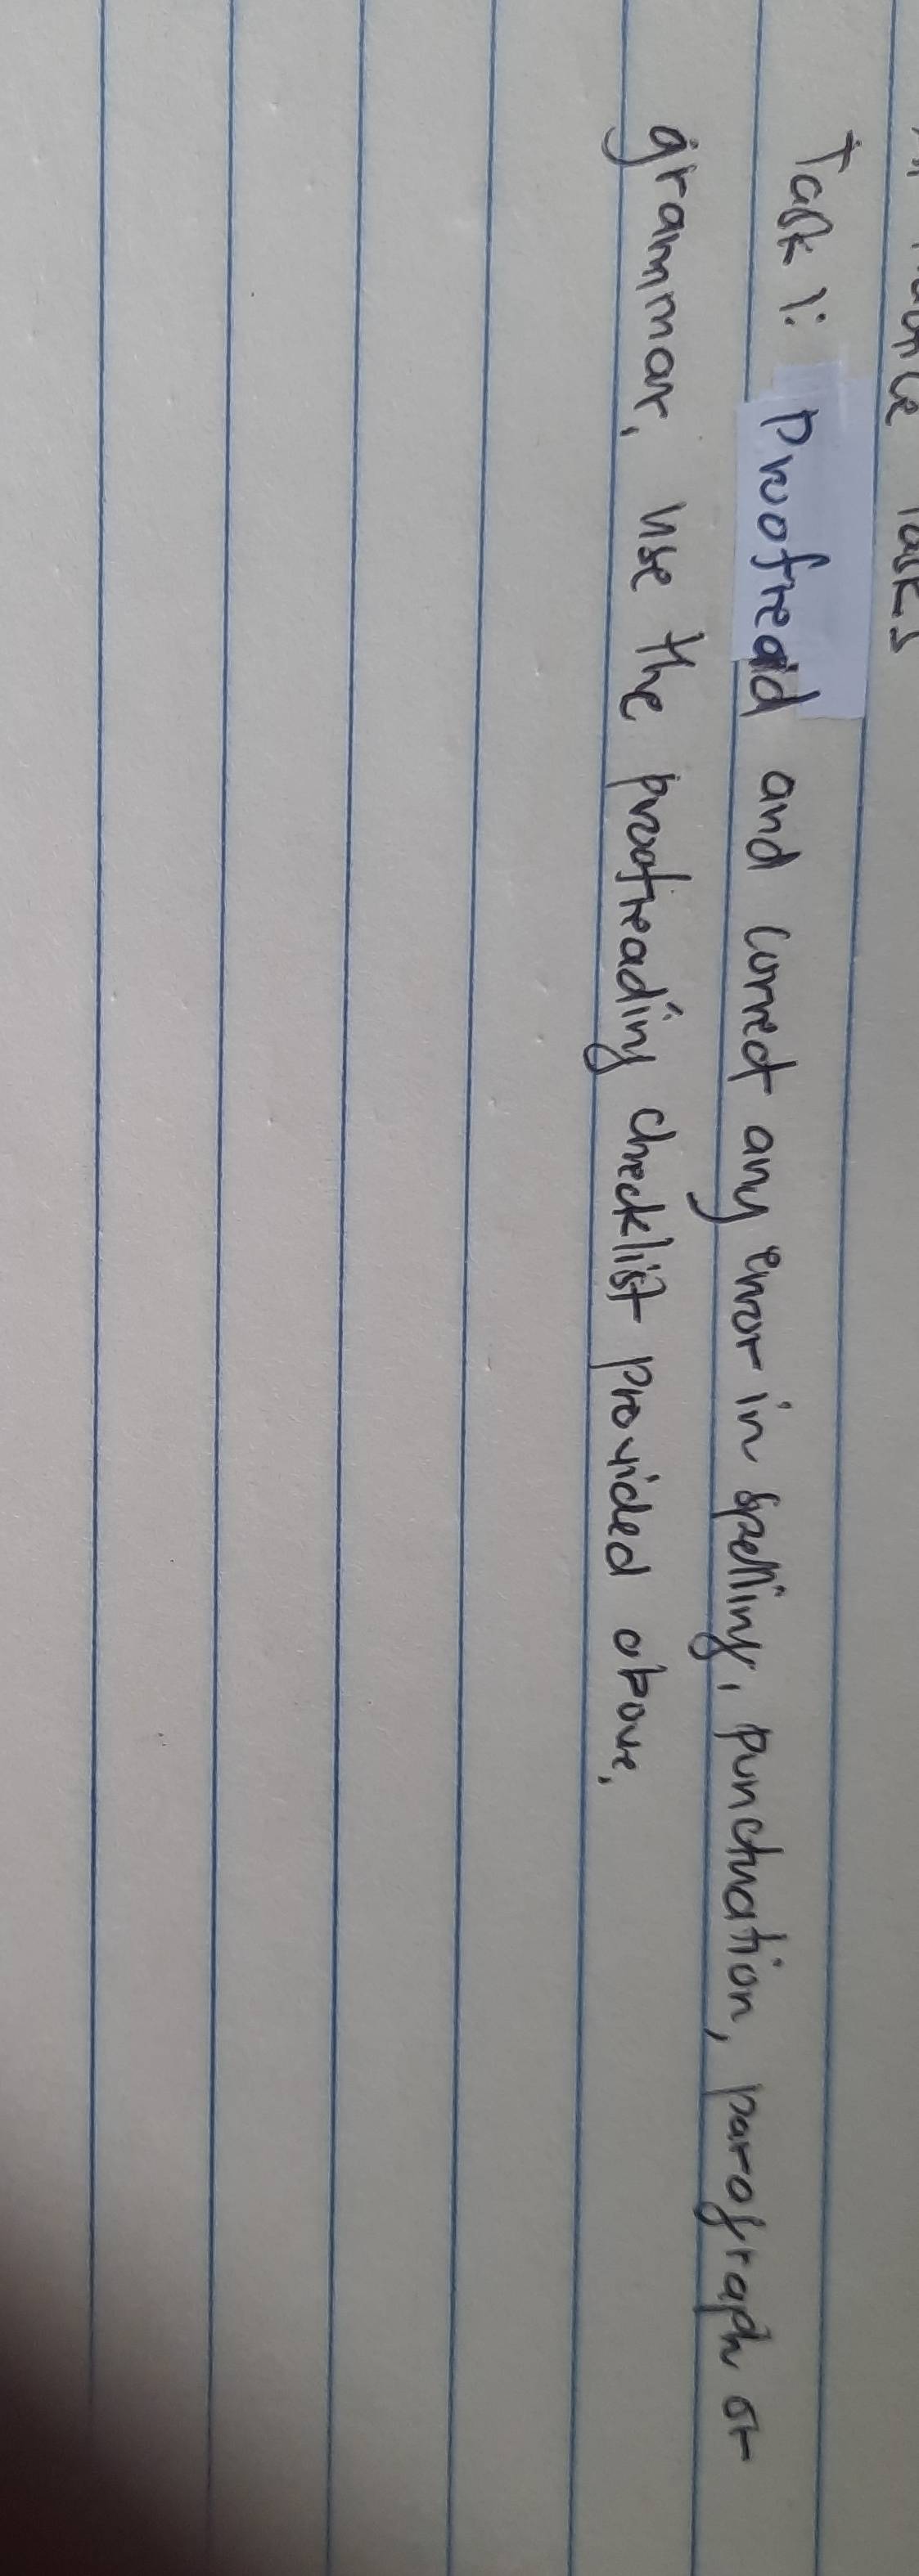 Tasks
Task 1: Proofread and correct any error in spelling, punctuation, paragraph or
grammar, use the proofreading checklist provided above.